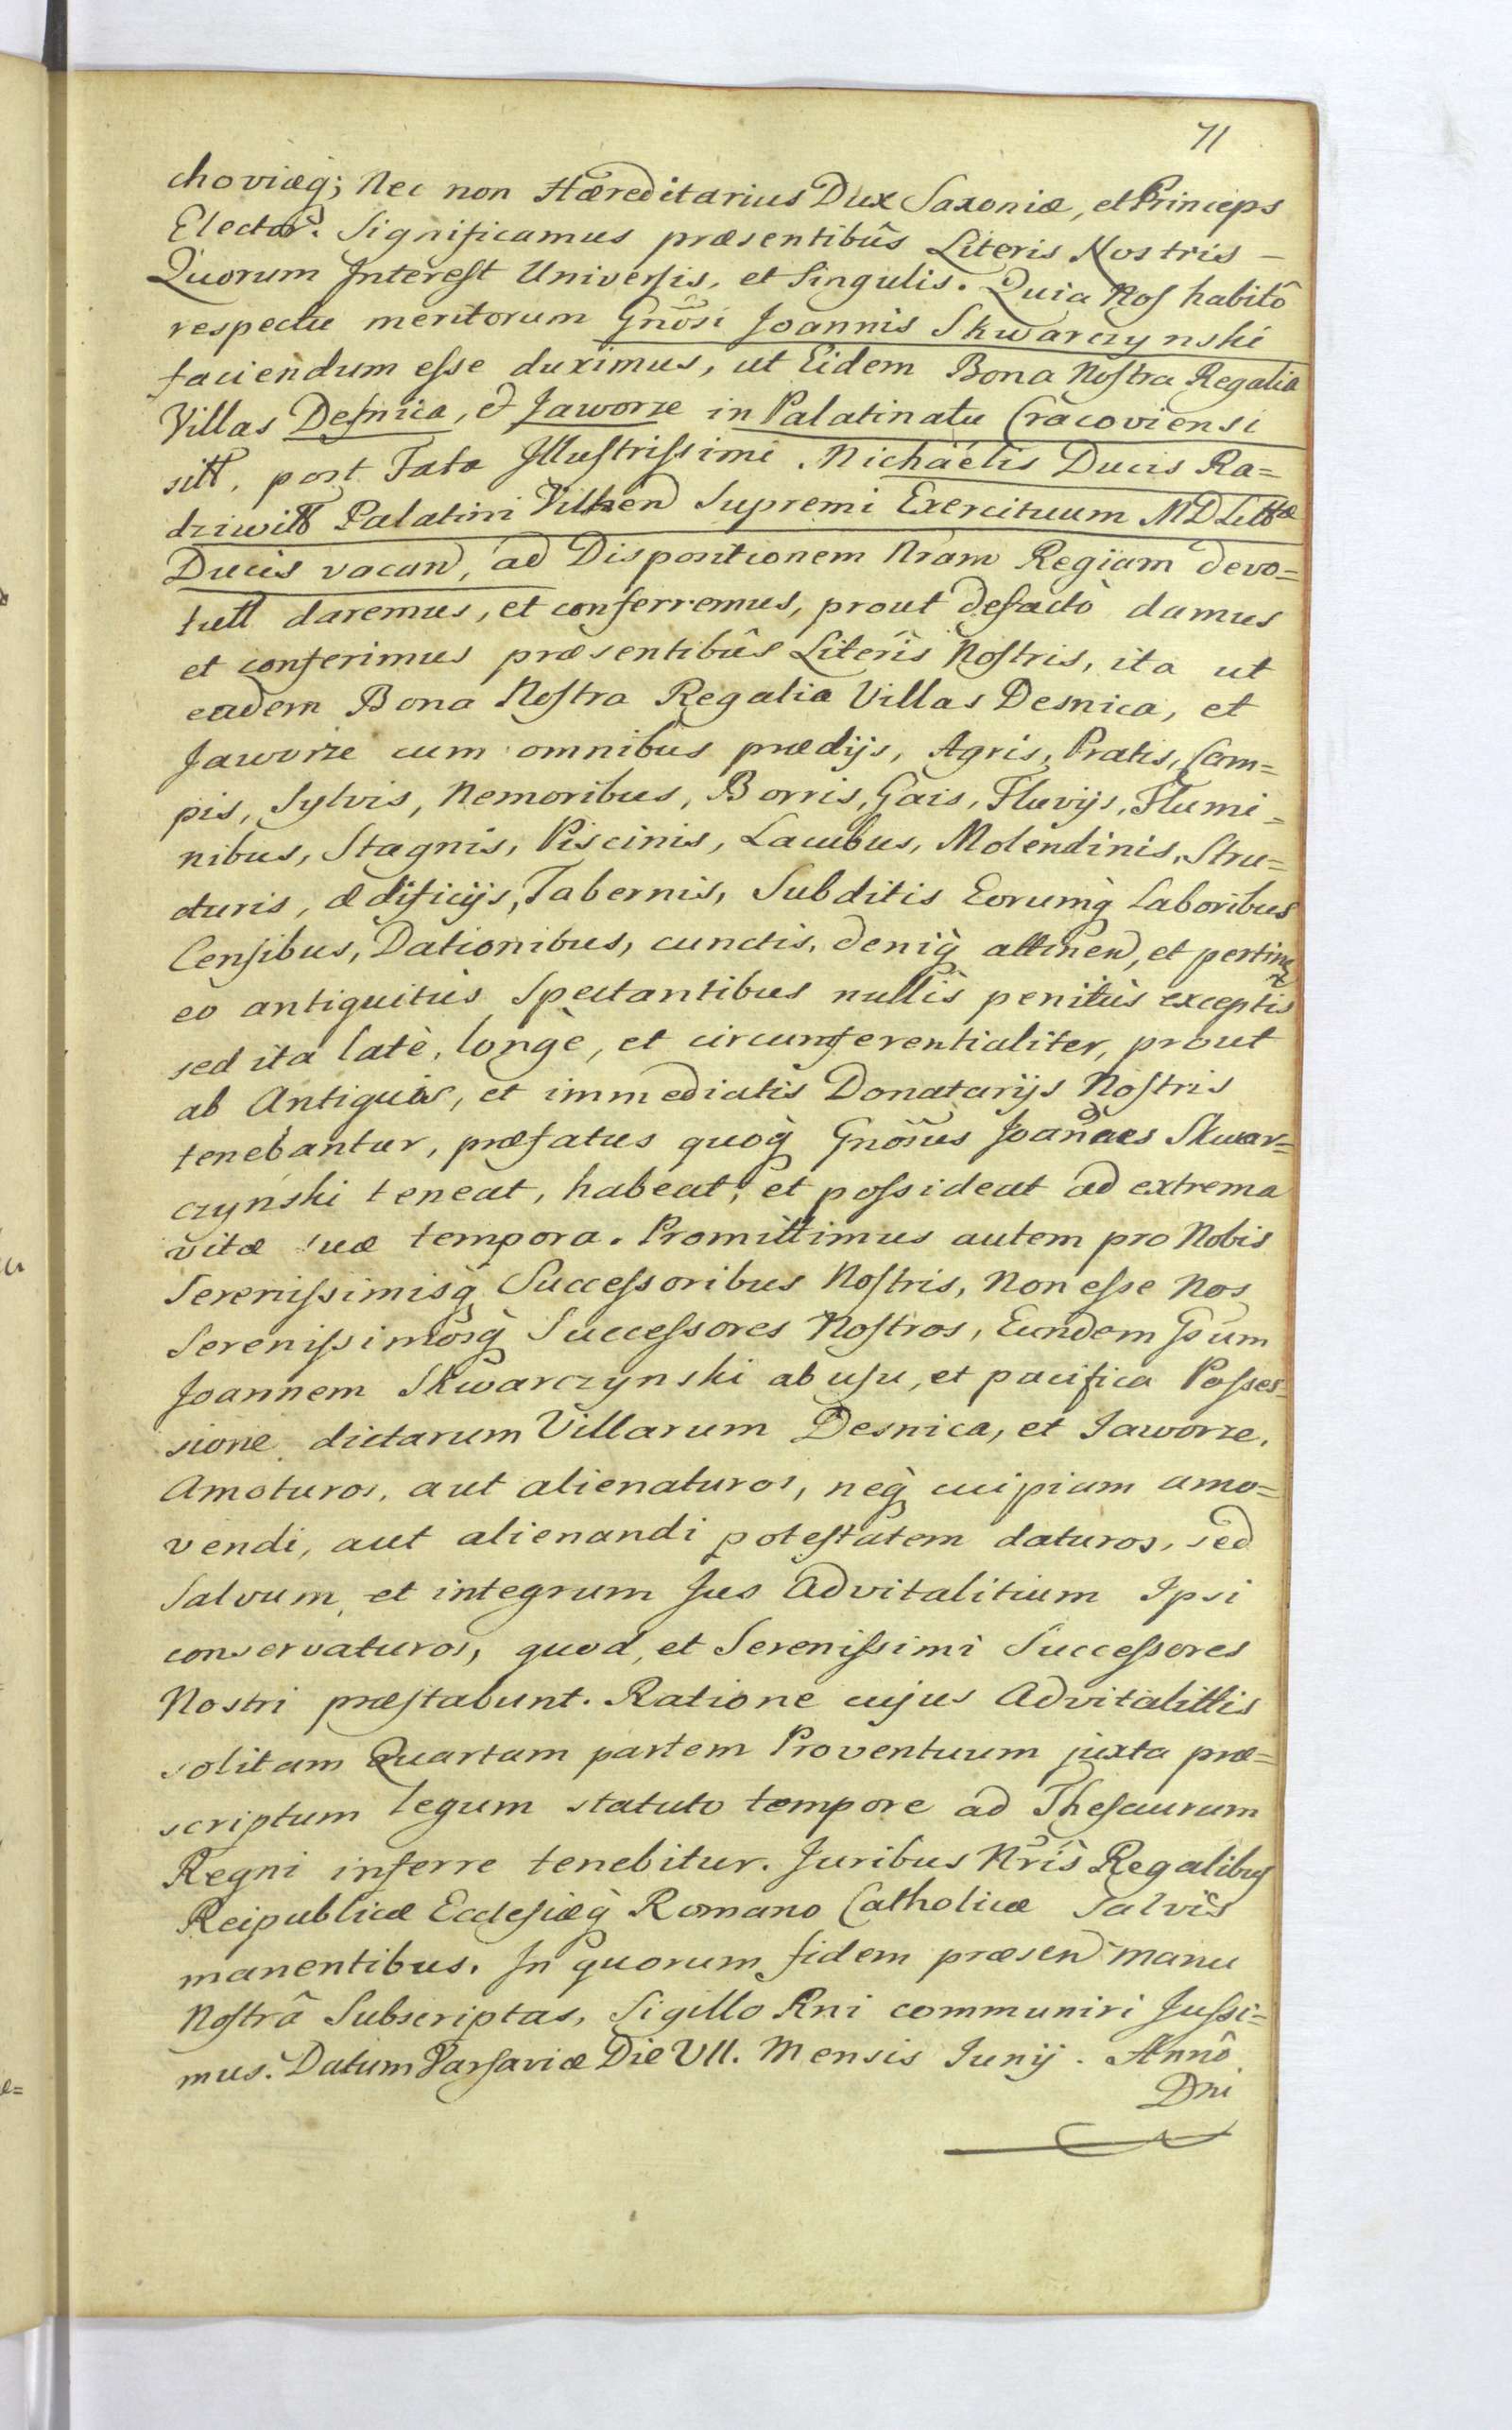 71
choviæq; Nec non Hæreditarius Dux Saxoniæ, et Princeps
Elector. Significamus præsentibûs Literis Nostris –
Quorum Interest Universis, et Singulis. Quia Nos habitô
respectu meritorum Gnosi Joannis Skwarczynski
faciendum esse duximus, ut Eidem Bona Nostra Regalia
Villas Desnica, et Jaworze in Palatinatu Cracoviensi
sitt. post Fata Illustrissimi Michaëlis Ducis Ra=
dziwill Palatini Vilnen Supremi Exercituum MDLitt
Ducis vacan, ad Dispontionem Nram Regiam devo=
lutt daremus, et conferremus, prout defactò damus
et conferimus præsentibûs Literis Nostris, ita ut
eadem Bona Nostra Regalia Villas Desnica, et
Jaworze cum omnibus prædijs, Agris, Pratis, Cam=
pis, Sylvis, Nemoribus, Borris, Gais, Fluvijs, Flumi=
nibus, Stagnis, Piscinis, Lacubus, Molendinis, Stru=
cturis, ædificijs, Tabernis, Subditis Eorumq Laboribus
Censibus, Dationibus, cunctis, deniq attinen, et pertinen
eo antiquitùs Spectantibus nullis penitùs exceptis
sed ita latè, longè, et circumferentialiter, prout
ab Antiquis, et immediatis Donatarijs Nostris
tenebantur, præfatus quoq Gnosus Joannes Skwar=
czynski teneat, habeat, et possideat ad extrema
vitæ suæ tempora. Promittimus autem pro Nobis
Serenissimisq Successoribus Nostris, Non esse Nos
Serenissimosq Successores Nostros, Eundem Gsum
Joannem Skwarczynski ab usu, et pacifica Posses=
sione dictarum Villarum Desnica, et Jaworze,
Amoturos, aut alienaturos, neq cuipiam amo=
vendi, aut alienandi potestatem daturos, sed
Salvum, et integrum Jus Advitalitium Ipsi
conservaturos, quod, et Serenissimi Successores
Nostri præstabunt. Ratione cujus Advitalittis
solitam Quartam partem Proventuum juxta præ=
scriptum legum statuto tempore ad Thesaurum
Regni inferre tenebitur. Juribus Nris Regalibus
Reipublicæ Ecclesiæq Romano Catholicæ Salvis
manentibus. In quorum fidem præsen manu
Nostrâ Subscriptas, Sigillo Rni communiri Jussi=
mus. Datum Varsaviæ Die VII. Mensis Junij. Annô
Dni